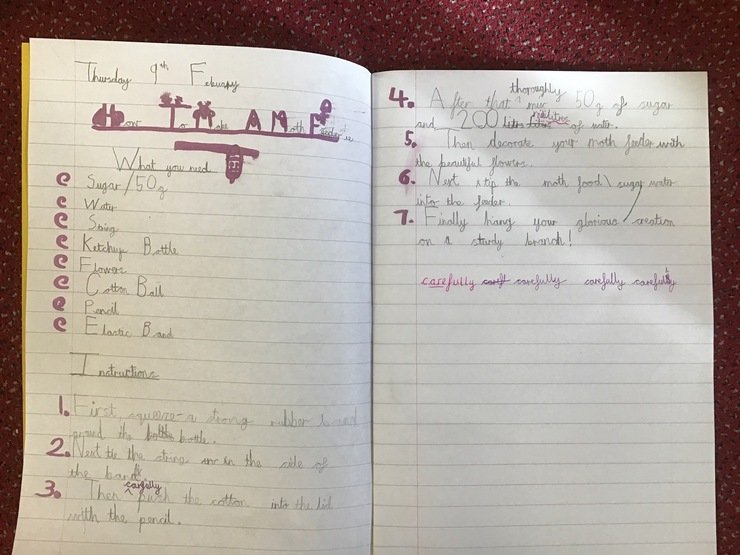 Thursday 9th Feburary
How To Make A Moth Feeder
What you need
Sugar/50g
Water
String
Ketchup Bottle
Flowers
Cotton Ball
Pencil
Elastic Band
Instructions
1. First squeeze a strong rubber band
around the bottle.
2. Next tie the string in the side of
the band.
carefully
3. Then ^ push the cotton into the lid
with the pencil.
thoroughly
4. After that ^ mix 50g of sugar
mililitres
and 200 litre litres of water.
5. Then decorate your moth feeder with
the beautiful flowers.
6. Next tip the moth food\ sugar water
into the feeder.
7. Finally hang your glorious creation
on a sturdy branch!
carefully carefully carefully carefully